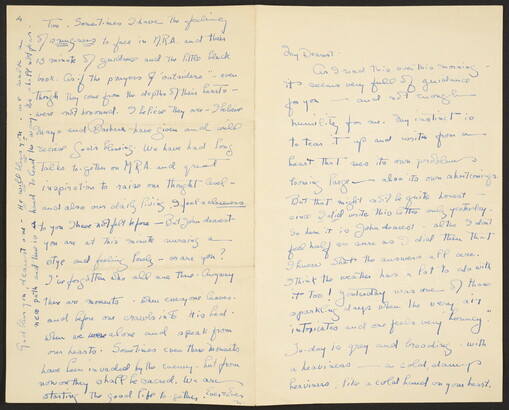 4
Too. Sometimes I have the feeling
of smugness to face in M.R.A. and their
15 minute of guidance and the little black
book. As if the prayers of outsiders - even
though they come from the depths of their hearts -
were not honored. I believe they are - I believe
Daryo and Barbara have given and will
receive God's blessing. We have had long
talks together on M.R.A. and great
inspiration to raise our thought level -
and also our daily living. I feel a closeness
to you I have not felt before - But John dearest
you are at this minute nursing a
stye and feeling lonely - or are you?
I've forgotten who all are there. Anyway
there are moments - when everyone leaves -
and before one crawls into it's bed -
when we were alone and speak from
our hearts. Sometimes even these moments
have been invaded by the enemy - but from
now on they shall be sacred. We are
starting the good life together.
God bless you dearest one - He will bless you - we need a
new path and there is a hand to lead the way.
My Dearest -
As I read this over this morning -
it seems very full of guidance
for you - and not enough
humility for me. My instinct is
to tear it up and write from a
heart that sees its own problems
looming large - also its own shortcomings.
But that might not be quite honest -
since I did write this letter only yesterday.
So here it is John dearest - altho I don't
feel half so sure as I did then that
I know what the answers all are.
I think the weather has a lot to do with
it too! Yesterday was one of those
sparkling days when the very air
intoxicates and one feels very "bouncy".
To-day is gray and brooding - with
a heaviness - a cold, damp
heaviness, like a cold hand on your heart.